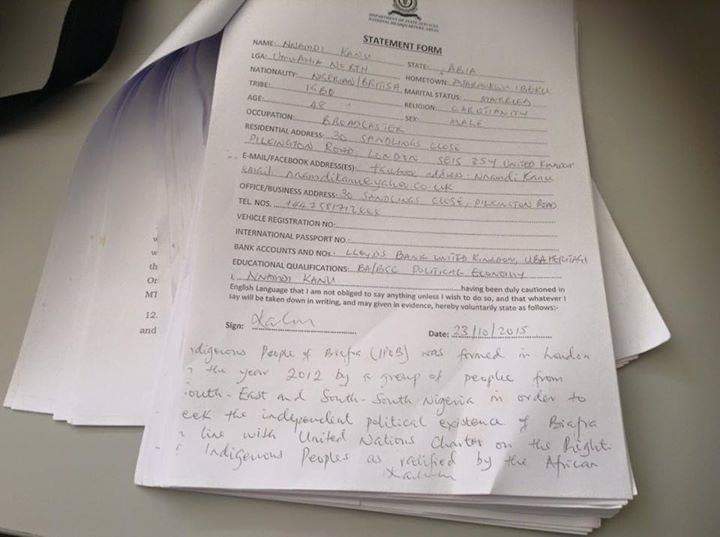 DEPARTMENT OF STATE SERVICES
NATIONAL HEADQUARTERS, ABUJA
STATEMENT FORM
NAME: NNAMDI KANU STATE: ABIA
LGA: UMUAHIA NORTH HOMETOWN: IBEKU
NATIONALITY: NIGERIAN/BRITISH MARITAL STATUS: MARRIED
TRIBE: IGBO RELIGION: CHRISTIANITY
AGE: 48 SEX: MALE
OCCUPATION: BROADCASTER
RESIDENTIAL ADDRESS: 30 SANDLINGS CLOSE
PILKINGTON ROAD, LONDON SE15 3SY UNITED KINGDOM
E-MAIL/FACEBOOK ADDRESS(ES): facebook address - Nnamdi Kanu
email nnamdikanu@yahoo.co.uk
OFFICE/BUSINESS ADDRESS: 30 SANDLINGS CLOSE, PILKINGTON ROAD
TEL NOS.
VEHICLE REGISTRATION NO:
INTERNATIONAL PASSPORT NO:
BANK ACCOUNTS AND NOs: LLOYDS BANK UNITED KINGDOM, UBA
EDUCATIONAL QUALIFICATIONS: BA/BSC POLITICAL ECONOMY
I, NNAMDI KANU having been duly cautioned in
English Language that I am not obliged to say anything unless I wish to do so, and that whatever I
say will be taken down in writing, and may given in evidence, hereby voluntarily state as follows:-
Sign: Date: 23/10/2015
ndigenous People of Biafra (IPOB) was formed in London
the year 2012 by a group of people from
outh-East and South-South Nigeria in order to
eek the independent political existence of Biafra
line with United Nations Charter on the Right
Indigenous Peoples as ratified by the African
w
w
th
On
MT
12.
and